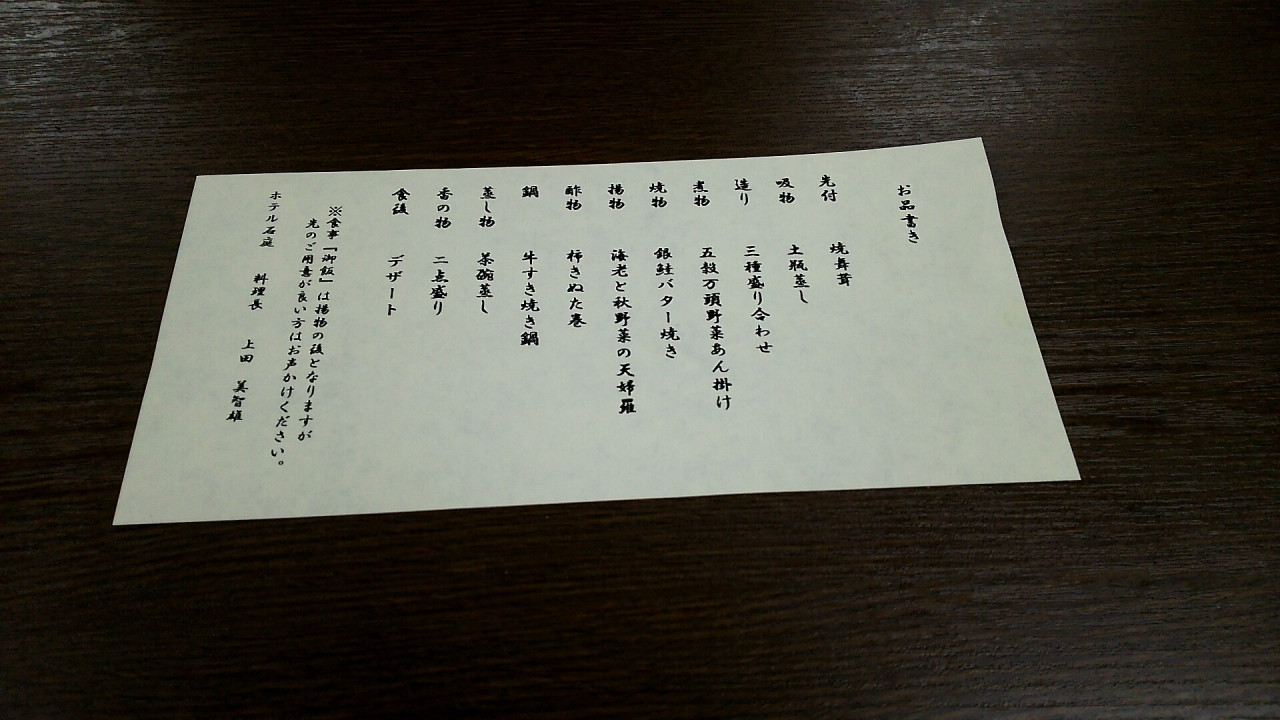 お品書き
先付 焼舞茸
吸物 土瓶蒸し
造り 三種盛り合わせ
煮物 五穀万頭野菜あん掛け
焼物 銀鮭バター焼き
揚物 海老と秋野菜の天婦羅
酢物 柿きぬた巻
鍋 牛すき焼き鍋
蒸し物 茶碗蒸し
香の物 二点盛り
食後 デザート
※食事『御飯』は揚物の後となりますが
先のご用意が良い方はお声かけください。
ホテル石庭 料理長 上田 美智雄